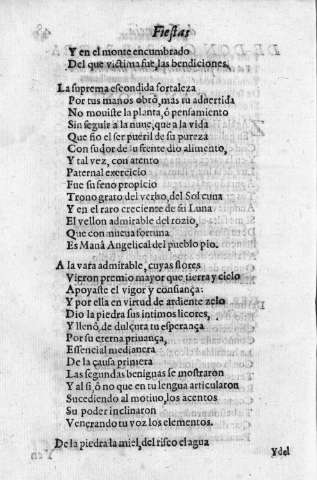 Fiestas
Y en el monte encumbrado
Del que victima fue, las bendiciones.
La suprema escondida fortaleza
Por tus manos obrò, mas tu aduertida
No mouiste la planta, ó pensamiento
Sin seguir a la nuue, que a la vida
Que fio el ser pueril de su pureza
Con sudor de su frente dio alimento,
Y tal vez, con atento
Paternal exercicio
Fue su seno propicio
Trono grato del verbo, del Sol cuna
Y en el raro creciente de su Luna
El vellon admirable del rozio,
Que con nueua fortuna
Es Manà Angelical del pueblo pio.
A la vara admirable, cuyas flores
Vieron premio mayor que tierra y cielo
Apoyaste el vigor y confiança:
Y por ella en virtud de ardiente zelo
Dio la piedra sus intimos licores,
Y llenò, de dulçura tu esperança
Por su eterna priuança,
Essencial medianera
De la causa primera
Las segundas benignas se mostraron
Y al si, ò no que en tu lengua articularon
Sucediendo al motiuo, los acentos
Su poder inclinaron
Venerando tu voz los elementos.
De la piedra la miel, del risco el agua
Y del